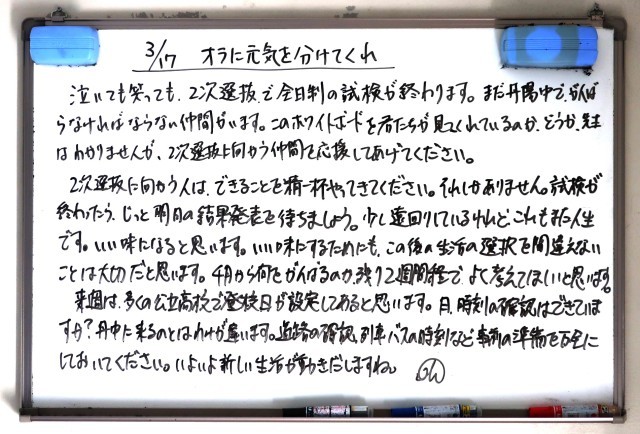 3/17 オラに元気を分けてくれ
泣いても笑っても、2次選抜で全日制の試検が終わります。まだ丹陽中で、がんば
らなければならない仲間がいます。このホワイトボードを君たちが見てくれているのか、どうか、先生
はわかりませんが、2次選抜に向かう仲間を応援してあげてください。
2次選抜に向かう人は、できることを精一杯やってきてください。それしかありません。試検が
終わったら、じっと明日の結果発表を待ちましょう。少し遠回りしているけれど、これもまた人生
です。いい味になると思います。いい味にするためにも、この後の生活の選択を間違えない
ことは大切だと思います。4月から何をがんばるのか、残り2週間程で、よく考えてほしいと思います。
来週は、多くの公立高校で登校日が設定してあると思います。日、時刻の確認はできていま
すか?丹中に来るのとはわけが違います。道路の確認、列車、バスの時刻など、事前の準備を万全に
しておいてください。いよいよ新しい生活が動きだしますね。